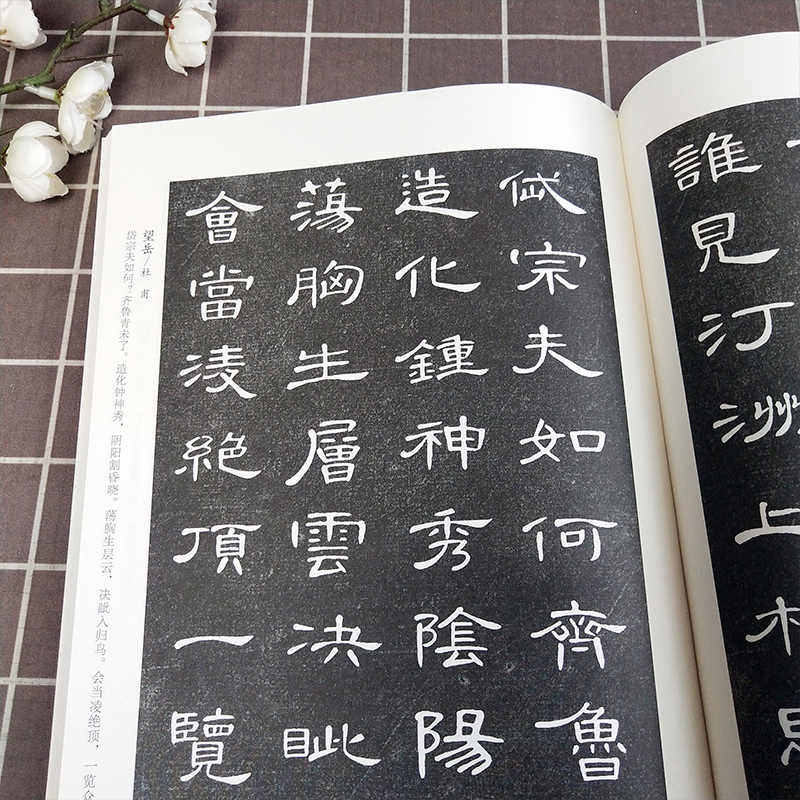 誰見汀洲上
岱宗夫如何齊魯
造化鍾神秀陰陽
蕩胸生層雲决眦
會當凌絕頂一覽
望岳/杜甫
岱宗夫如何？齐鲁青未了。造化钟神秀，阴阳割昏晓。荡胸生层云，决眦入归鸟。会当凌绝顶，一览众